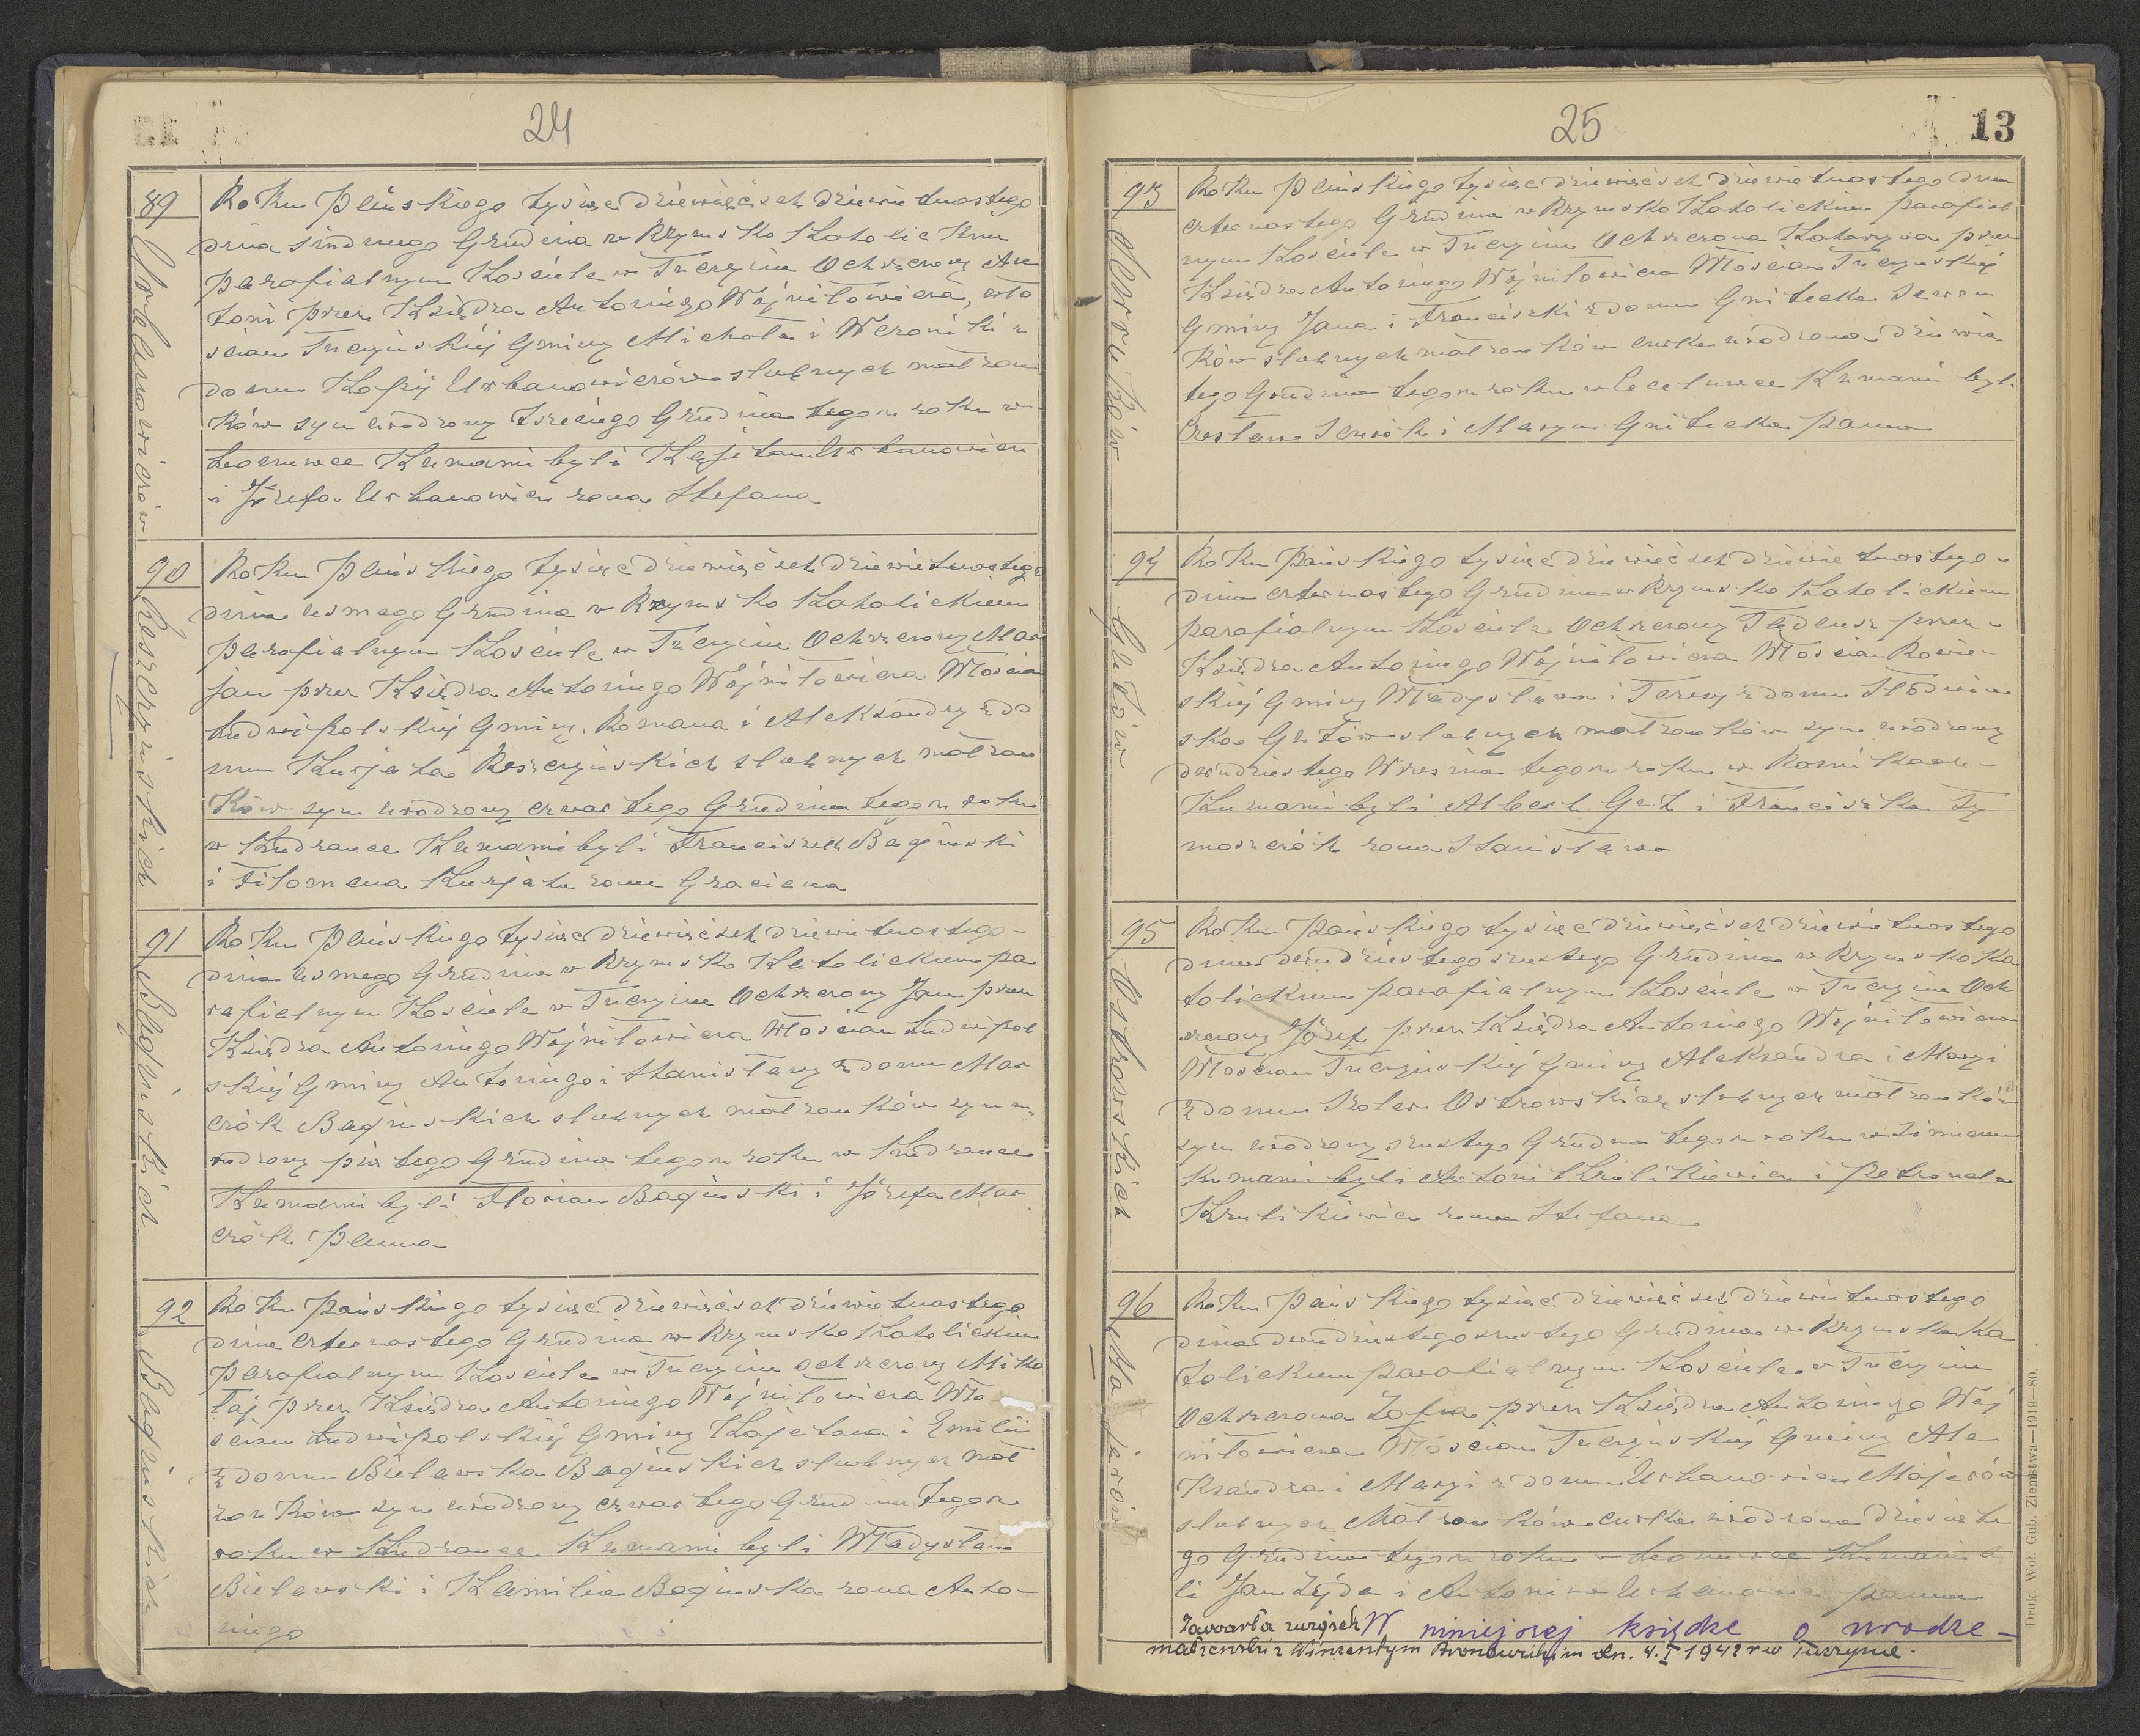 24
89
Urbanowiczów
Roku Pańskiego tysiąc dziewięćset dziewietnastego
dnia siudmego Grudnia w Rzymsko Katolickim
parafialnym Kosciele w Tuczynie Ochrzczony An
toni przez Księdza Antoniego Wójniłowicza, wło
scian Tuczyńskiéj Gminy Michała i Weroniki z
domu Urbanowiczów slubnych małżon
ków syn urodzony trzeciego Grudnia tegoż roku w
Leonuwce Kumami byli Kajetan Urbanowicz
i Józefa Urbanowicz zona Stefana
90
Reszczyńskich
Roku Pańskiego tysiąc dziewięćset dziewietnastego
dnia usmego Grudnia w Rzymsko Katolickiem
parafialnym Kosciele w Tuczynie Ochrzczony Mar
jan przez Księdza Antoniego Wójniłowicza Włoscian
Ludwipolskiéj Gminy. Romana i Aleksandry z do
mu Kurjata Reszczyńskich slubnych małżon
ków syn urodzony czwartego Grudnia tegoż roku
w Hudrance Kumami byli Franciszek Bagiński
i Filomena Kurjata zona Graciana
91
Bagińskich
Roku Pańskiego tysiąc dziewięćset dziewietnastego
dnia usmego Grudnia w Rzymsko Katolickiem pa
rafialnym Kosciele w Tuczynie Ochrzczony Jan przez
Księdza Antoniego Wójniłowicza Włoscian Ludwipol
skiéj Gminy Antoniego i Stanisławy z domu Mar
czók Bagińskich slubnych małżonków syn u
rodzony piątego Grudnia tegoż roku w Hudrance
Kumami byli Florian Bagiński i Józefa Mar
czók panna
92
Bagińskich
Roku Pańskiego tysiąc dziewięćset dziewietnastego
dnia czternastego Grudnia w Rzymsko Katolickiem
parafialnym Kosciele w Tuczynie ochrzczony Miko
łaj przez Księdza Antoniego Wójniłowicza Wło
scian Ludwipolskiéj Gminy Kajetana i Emilii
z domu Bielawska Bagińskich slubnych mał
żonków syn urodzony czwartego Grudnia tegoż
roku w Hudrance. Kumami byli Władysław
Bielawski i Kamilia Bagińska zona Anto-
niego
25
13
93
Roku Pańskiego tysiąc dziewięćset dziewietnastego dnia
czternastego Grudnia w Rzymsko Katolickiem parafial
nym Kosciele w Tuczynie Ochrzczona Katarzyna przez
Księdza Antoniego Wójniłowicza Włoscian Tuczyńskiéj
Gminy Jana i Franciszki z domu Gnitecka
ków slubnych małżonków curka urodzona dziewią
tego Grudnia tegoż roku w Kumami byli
Czesław i Marya Gnitecka panna
94
Gutów
Roku Pańskiego tysiąc dziewięćset dziewietnastego
dnia czternastego Grudnia w Rzymsko Katolickiem
parafialnym Kosciele Ochrzczony Tadeusz przez
Księdza Antoniego Wójniłowicza Włoscian Rowień
skiéj Gminy Władysława i Teresy z domu
ska Gutów slubnych małżonków syn urodzony
dwudziestego Wrzesnia tegoż roku w
Kumami byli Albert Gut i Franciszka Ty
moszczók zona Stanisława
95
Ostrowskich
Roku Pańskiego tysiąc dziewięćset dziewietnastego
dnia dwudziestego szustego Grudnia w Rzymsko Ka
tolickiem parafialnym Kosciele w Tuczynie Och
rzczony Józef przez Księdza Antoniego Wójniłowicza
Włoscian Tuczyńskiéj Gminy Aleksandra i Maryi
z domu Ostrowskich slubnych małżonków
syn urodzony szustego Grudnia tegoż roku w
Kumami byli Antoni Krulikiewicz i Petronela
Krulikiewicz zona Stefana
96
Majerów
Roku Pańskiego tysiąc dziewięćset dziewietnastego
dnia dwudziestego szustego Grudnia w Rzymsko Ka
tolickiem parafialnym Kosciele w Tuczynie
Ochrzczona Zofia przez Księdza Antoniego Wój
niłowicza Włoscian Tuczyńskiéj Gminy Ale
ksandra i Maryi z domu Urbanowicz Majerów
slubnych Małżonków curka urodzona dziesiąte
go Grudnia tegoż roku w Leonuwce Kumami by
li Jan i Antonina Urbanowicz panna
Zawarła związek W niniejszej książce o urodze-
małżeński z Wincentym dn. 4. I 1942 r w Tuczynie.
Druk. Woł. Gub. Ziemstwa—1919—80.